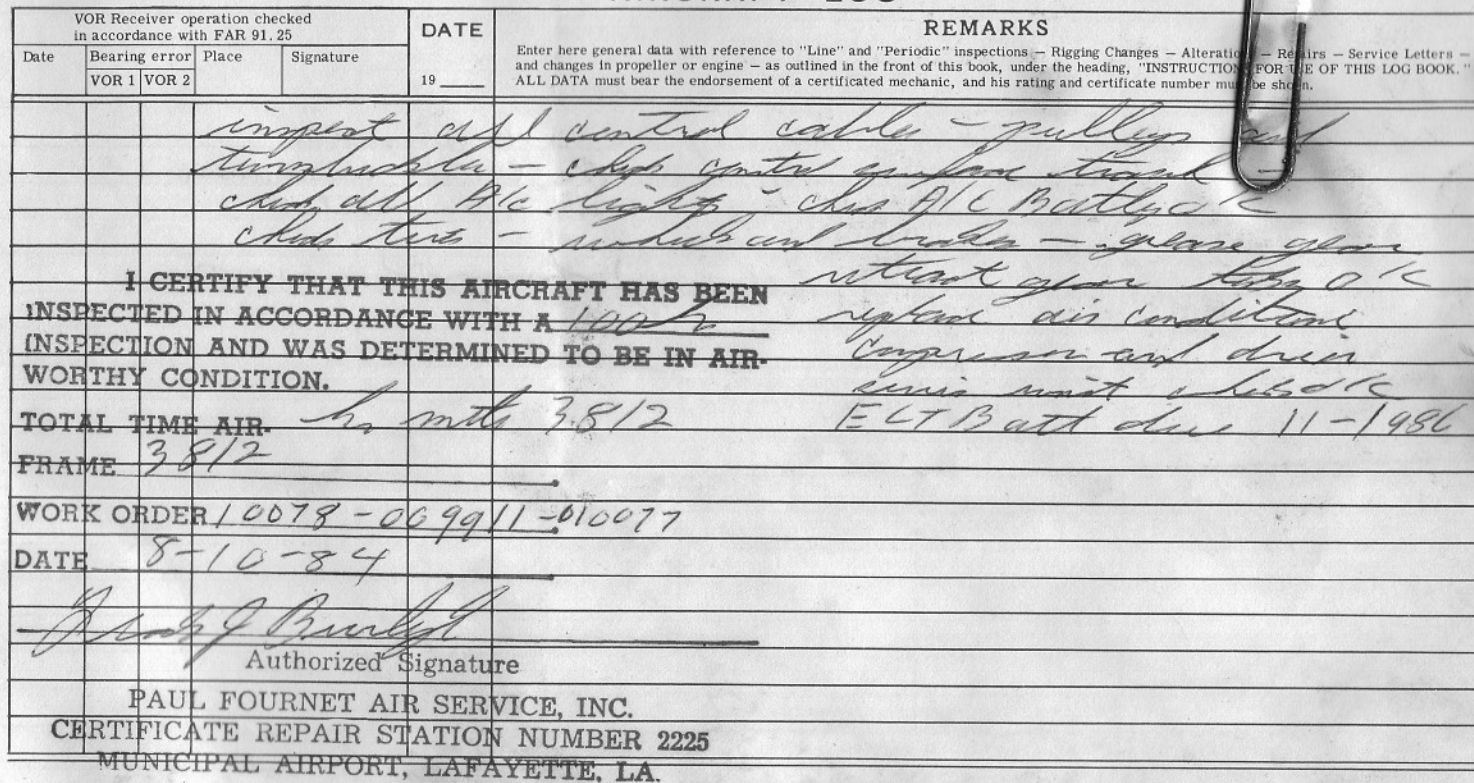 VOR Receiver operation checked
in accordance with FAR 91.25
Date
Bearing error
VOR 1 VOR 2
Place
Signature
DATE
19
REMARKS
Enter here general data with reference to "Line" and "Periodic" inspections — Rigging Changes — Alterations — Repairs — Service Letters —
and changes in propeller or engine — as outlined in the front of this book, under the heading, "INSTRUCTIONS FOR USE OF THIS LOG BOOK."
ALL DATA must bear the endorsement of a certificated mechanic, and his rating and certificate number must be shown.
inspect all control cables - pulleys and
turnbuckles - check control surface travel -
check all A/C lights - check A/C Battery o/k
check tires - wheels and brakes - grease gear
retract gear o/k
replaced air condition
compressor and drier
unit o/k
ELT Batt due 11-1986
I CERTIFY THAT THIS AIRCRAFT HAS BEEN
INSPECTED IN ACCORDANCE WITH A 100 hr
INSPECTION AND WAS DETERMINED TO BE IN AIR-
WORTHY CONDITION.
TOTAL TIME AIR- 3812
FRAME 3812
WORK ORDER 10078-009911-010077
DATE 8-10-84
Authorized Signature
PAUL FOURNET AIR SERVICE, INC.
CERTIFICATE REPAIR STATION NUMBER 2225
MUNICIPAL AIRPORT, LAFAYETTE, LA.